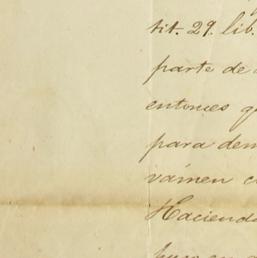 tit. 29. lib.
parte de
entonces q
para dem
vámen c
Hacienda